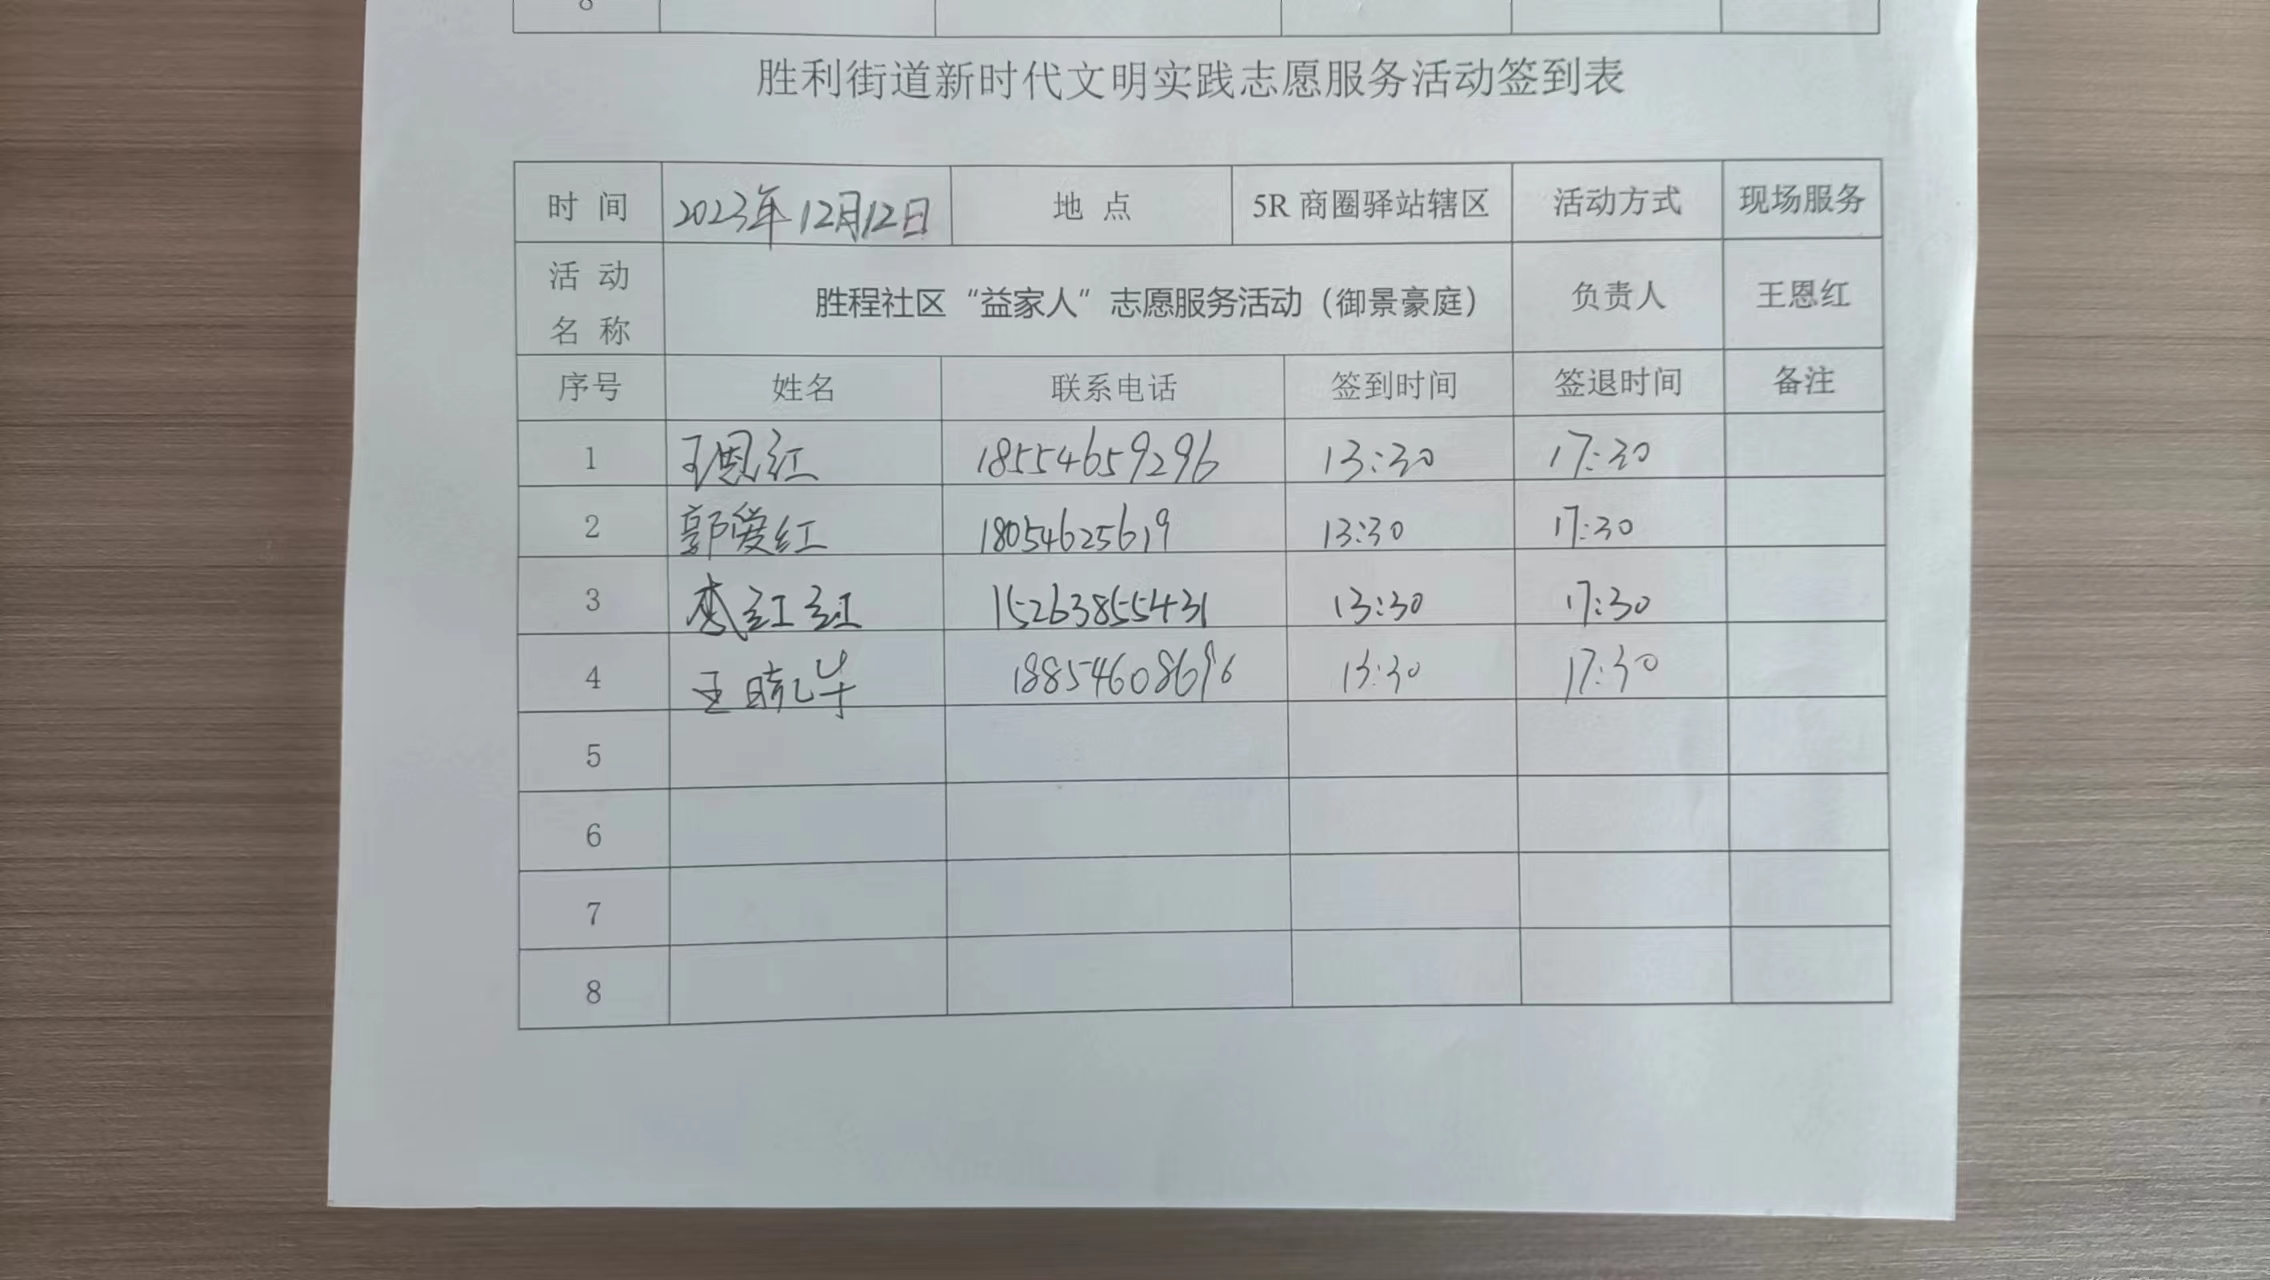 8
胜利街道新时代文明实践志愿服务活动签到表
时 间 2023年12月12日 地 点 5R 商圈驿站辖区 活动方式 现场服务
活 动
名 称 胜程社区“益家人”志愿服务活动（御景豪庭） 负责人 王恩红
序号 姓名 联系电话 签到时间 签退时间 备注
1 王恩红 18554659296 13:30 17:30
2 郭爱红 18054625619 13:30 17:30
3 李红红 15263855431 13:30 17:30
4 王晓华 18854608696 13:30 17:30
5
6
7
8